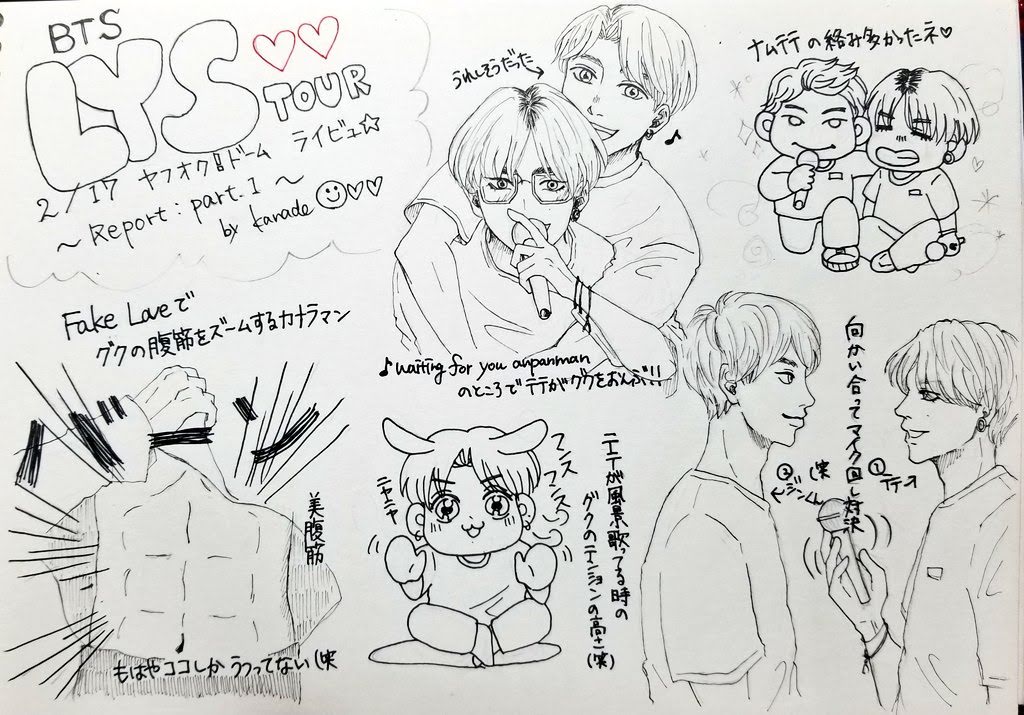 BTS
LYS
TOUR
2/17 ヤフオク!ドーム ライビュ☆
~ Report : part.1 ~
by kanade
うれしそうだった
ナムテテの絡み多かったネ♡
Fake Loveで
グクの腹筋をズームするカメラマン
美腹筋
もはやココしかうつってない(笑
♪waiting for you anpanman
のところでテテがグクをおんぶ!!
フンス
フンス
ニャニャ
テテが風景歌ってる時の
グクのテンションの高さ(笑)
向かい合ってマイク回し対決
①テテ→
②ジン(笑